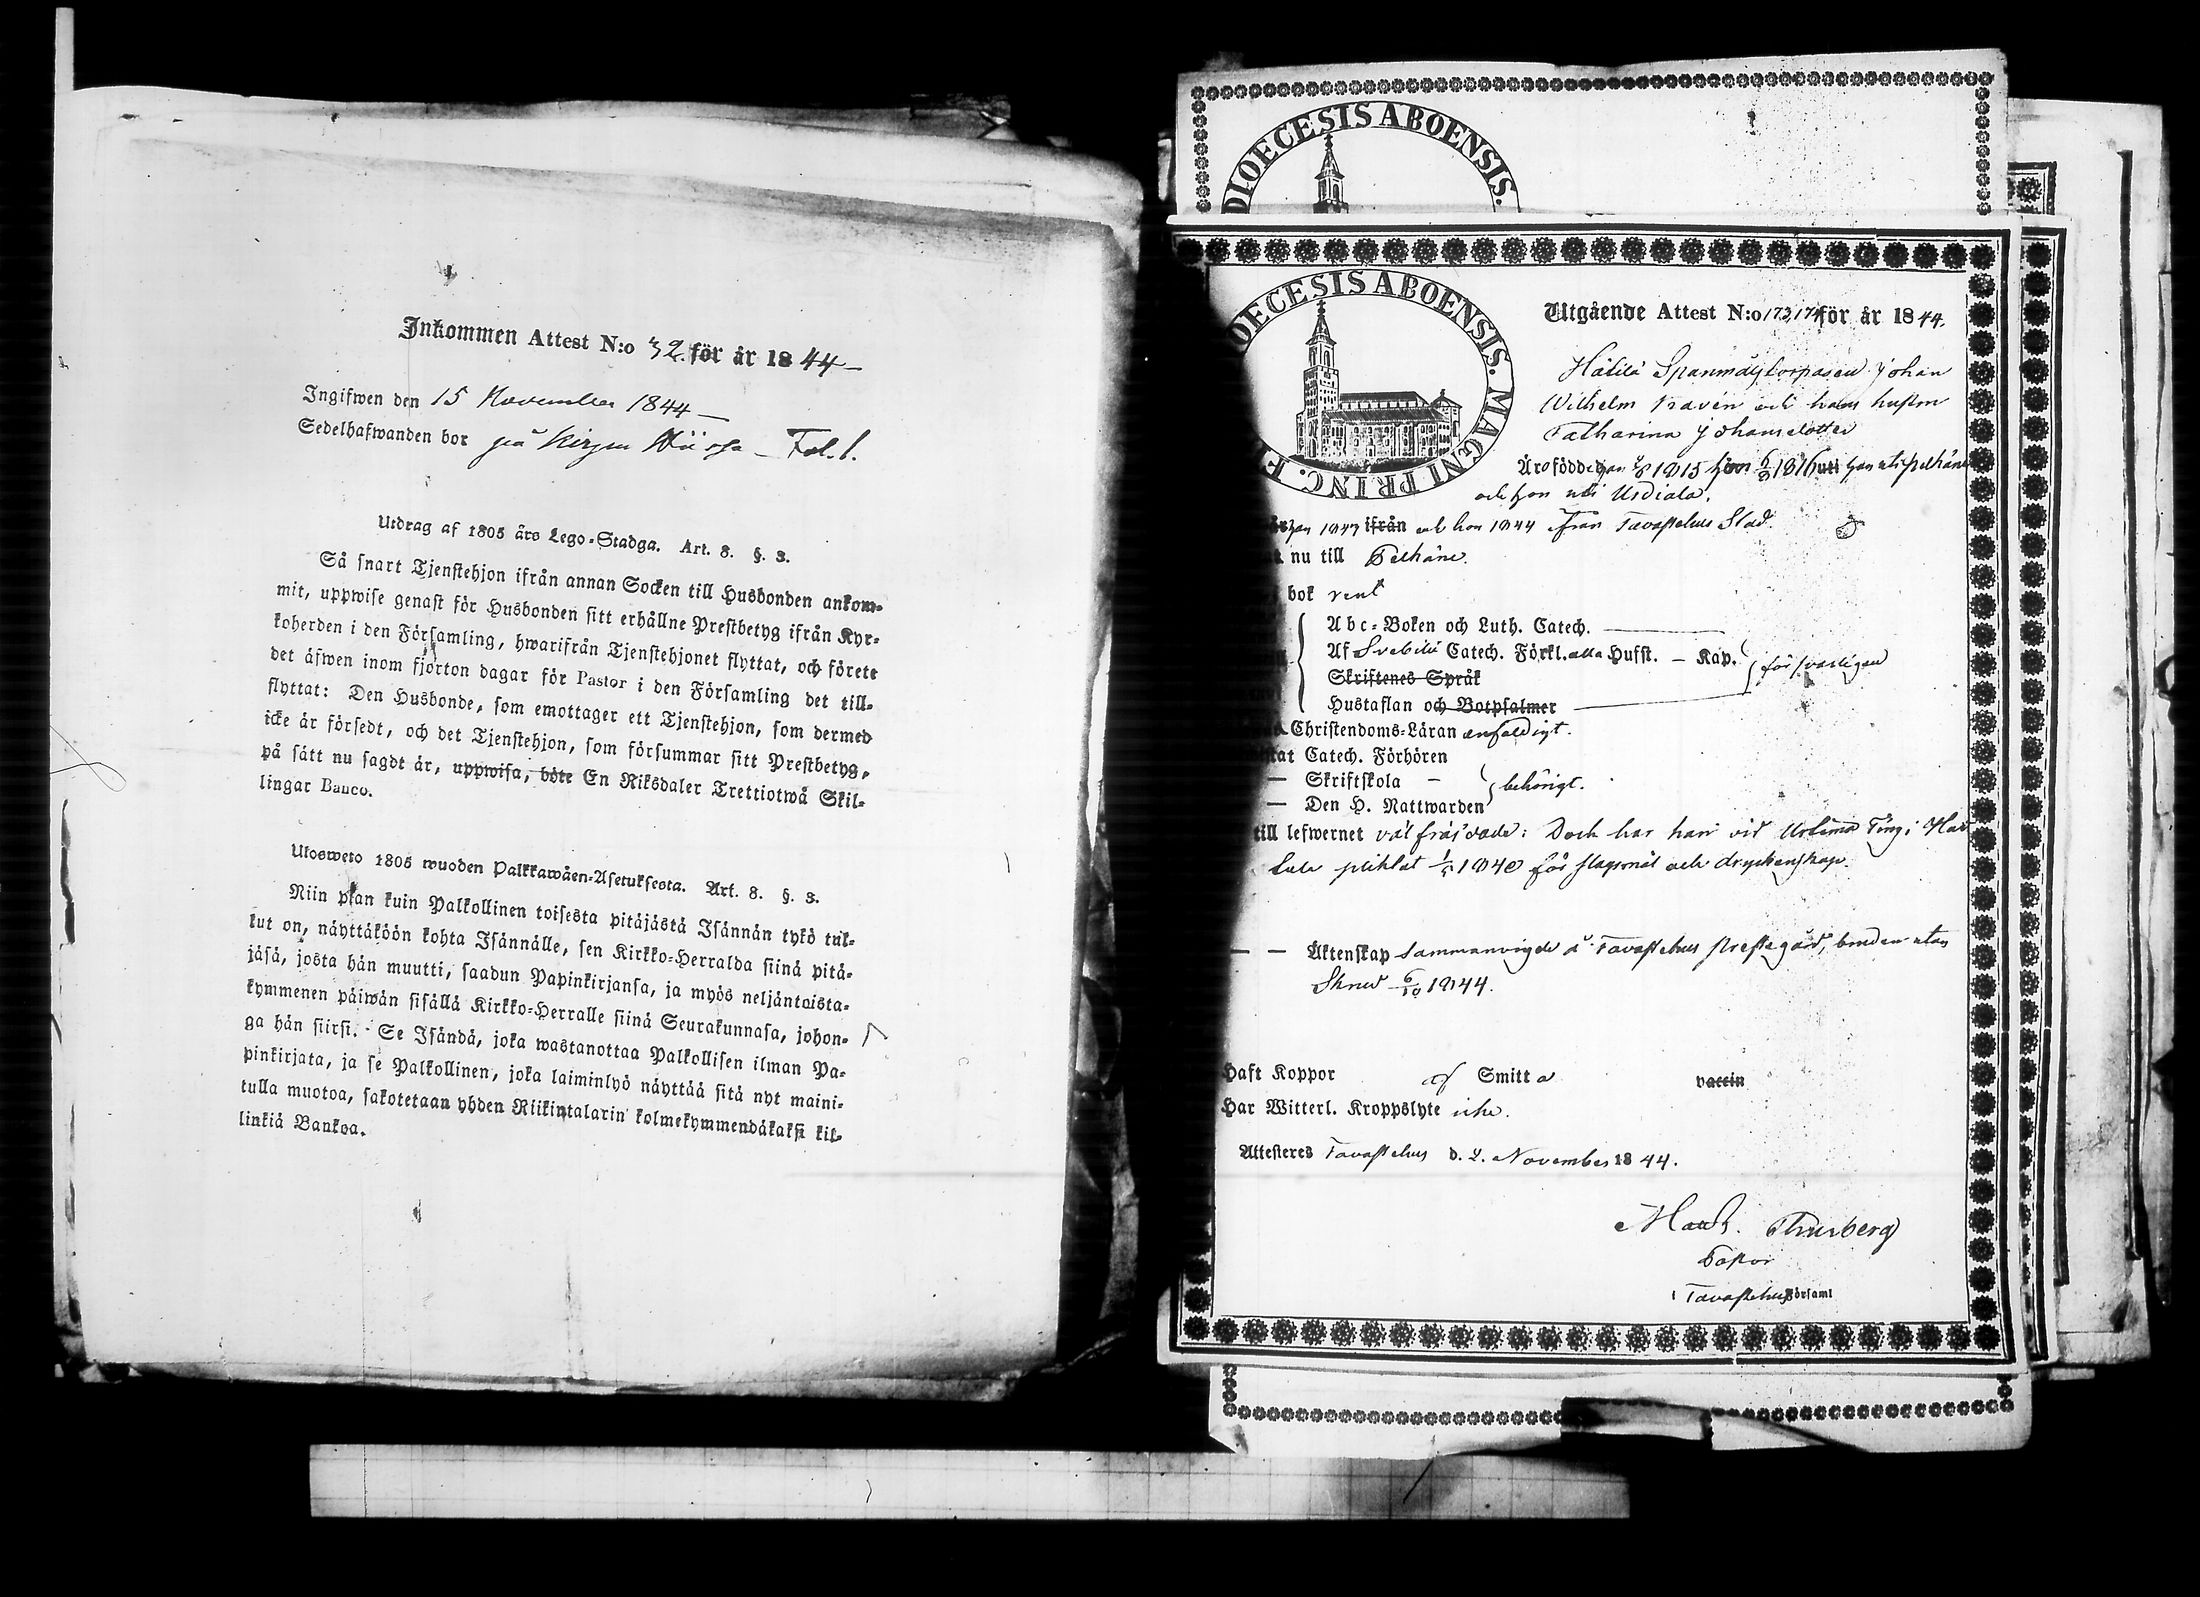 Inkommen Attest N:o 32. för år 1844
Ingifwen den 15 November 1844
Sedelhafwanden bor på Fol. 1.
Utdrag af 1805 års Lego-Stadga. Art. 8. §. 3.
Så snart Tjenstehjon ifrån annan Socken till Husbonden ankom-
mit, uppwise genast för Husbonden sitt erhållne Prestbetyg ifrån Kyr-
koherden i den Församling, hwarifrån Tjenstehjonet flyttat, och förete
det äfwen inom fjorton dagar för Pastor i den Församling det till-
flyttat: Den Husbonde, som emottager ett Tjenstehjon, som dermed
icke är försedt, och det Tjenstehjon, som försummar sitt Prestbetyg,
på sätt nu sagdt är, uppwisa, böte En Riksdaler Trettiotwå Skil-
lingar Banco.
Ulosweto 1805 wuoden Palkkawäen-Asetuksesta. Art. 8. §. 3.
Niin pian kuin Palkollinen toisesta pitäjästä Isännän tykö tul-
kut on, näyttäköön kohta Isännälle, sen Kirkko-Herralda siinä pitä-
jäsä, josta hän muutti, saadun Papinkirjansa, ja myös neljäntoista-
kymmenen päiwän sisällä Kirkko-Herralle siinä Seurakunnasa, johon-
ga hän siirsi. Se Isändä, joka wastanottaa Palkollisen ilman Pa-
pinkirjata, ja se Palkollinen, joka laiminlyö näyttää sitä nyt maini-
tulla muotoa, sakotetaan yhden Riikintalarin kolmekymmendäkaksi kil-
linkiä Bankoa.
DIOECESIS ABOENSIS.
OECESIS ABOENSIS. MAGNI PRINC. F
Utgående Attest N:o 173,174 för år 1844.
Hätilä Johan
Wilhelm och hans hustru
Catharina Johansdotter
Äro födde han 1815 hon 1816 uti han uti Pelkäne
och hon uti Urdiala.
han 1844 ifrån och hon 1844 från Tavastehus Stad.
nu till Pelkäne.
bok rent
Abc-Boken och Luth. Catech.
Af Svebilii Catech. Förkl. alla Hufst. - Kap. försvarligen
Skriftenes Språk
Hustaflan och Botpsalmer
Christendoms-Läran enfaldigt.
Catech. Förhören
— Skriftskola - behörigt.
— Den H. Nattwarden
till lefwernet väl frejdade: Doch har han vid Urtima Ting i Hat
tula pliktat 1/5 1840 för slagsmål och dryckenskap.
— — Äktenskap sammanvigde å Tavastehus Prestegård, bruden utan
Skrud 6/10 1844.
Haft Koppor af Smitta vaccin
Har Witterl. Kroppslyte icke.
Attesteres Tavastehus d. 2. November 1844.
Thurberg
Pastor
i Tavastehus Församl